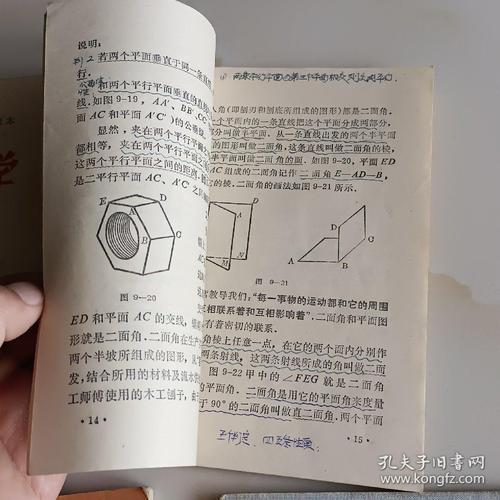 说明：
若两个平面垂直于同一条直
行．
和两个平行平面垂直的直线
线．如图9-19，AA′、BB′、CC
面AC和平面A′C′)的公垂线．
显然，夹在两个平行平面
都相等，夹在两个平行平面之
这两个平行平面之间的距离．
是二平行平面AC、A′C′之
E D A B C
图 9—20
ED和平面AC的交线，
形就是二面角．二面角在生产
两个半坡所组成的图形，
发，结合所用的材料及流水
工师傅使用的木工刨子，
·14·
角(即刨刃和刨底所组成的图形)都是二面角．
个平面内的一条直线把这个平面分成两部分，
部分叫做半平面．从一条直线出发的两个半平面
的图形叫做二面角，这条直线叫做二面角的棱，
半平面叫做二面角的面．如图9-20，平面ED
AC组成的二面角记作二面角E—AD—B，
的棱．二面角的画法如图9-21所示．
A N M
D C A B
图 9—21
教导我们："每一事物的运动都和它的周围
互相联系着和互相影响着"．二面角和平面图
有着密切的联系．
棱上任意一点，在它的两个面内分别作
两条射线，这两条射线所成的角叫做二面
图9-22甲中的∠FEG就是二面角
的平面角．二面角是用它的平面角来度量
于90°的二面角叫做直二面角．两个平面
·15·
孔夫子旧书网
kongfz.com